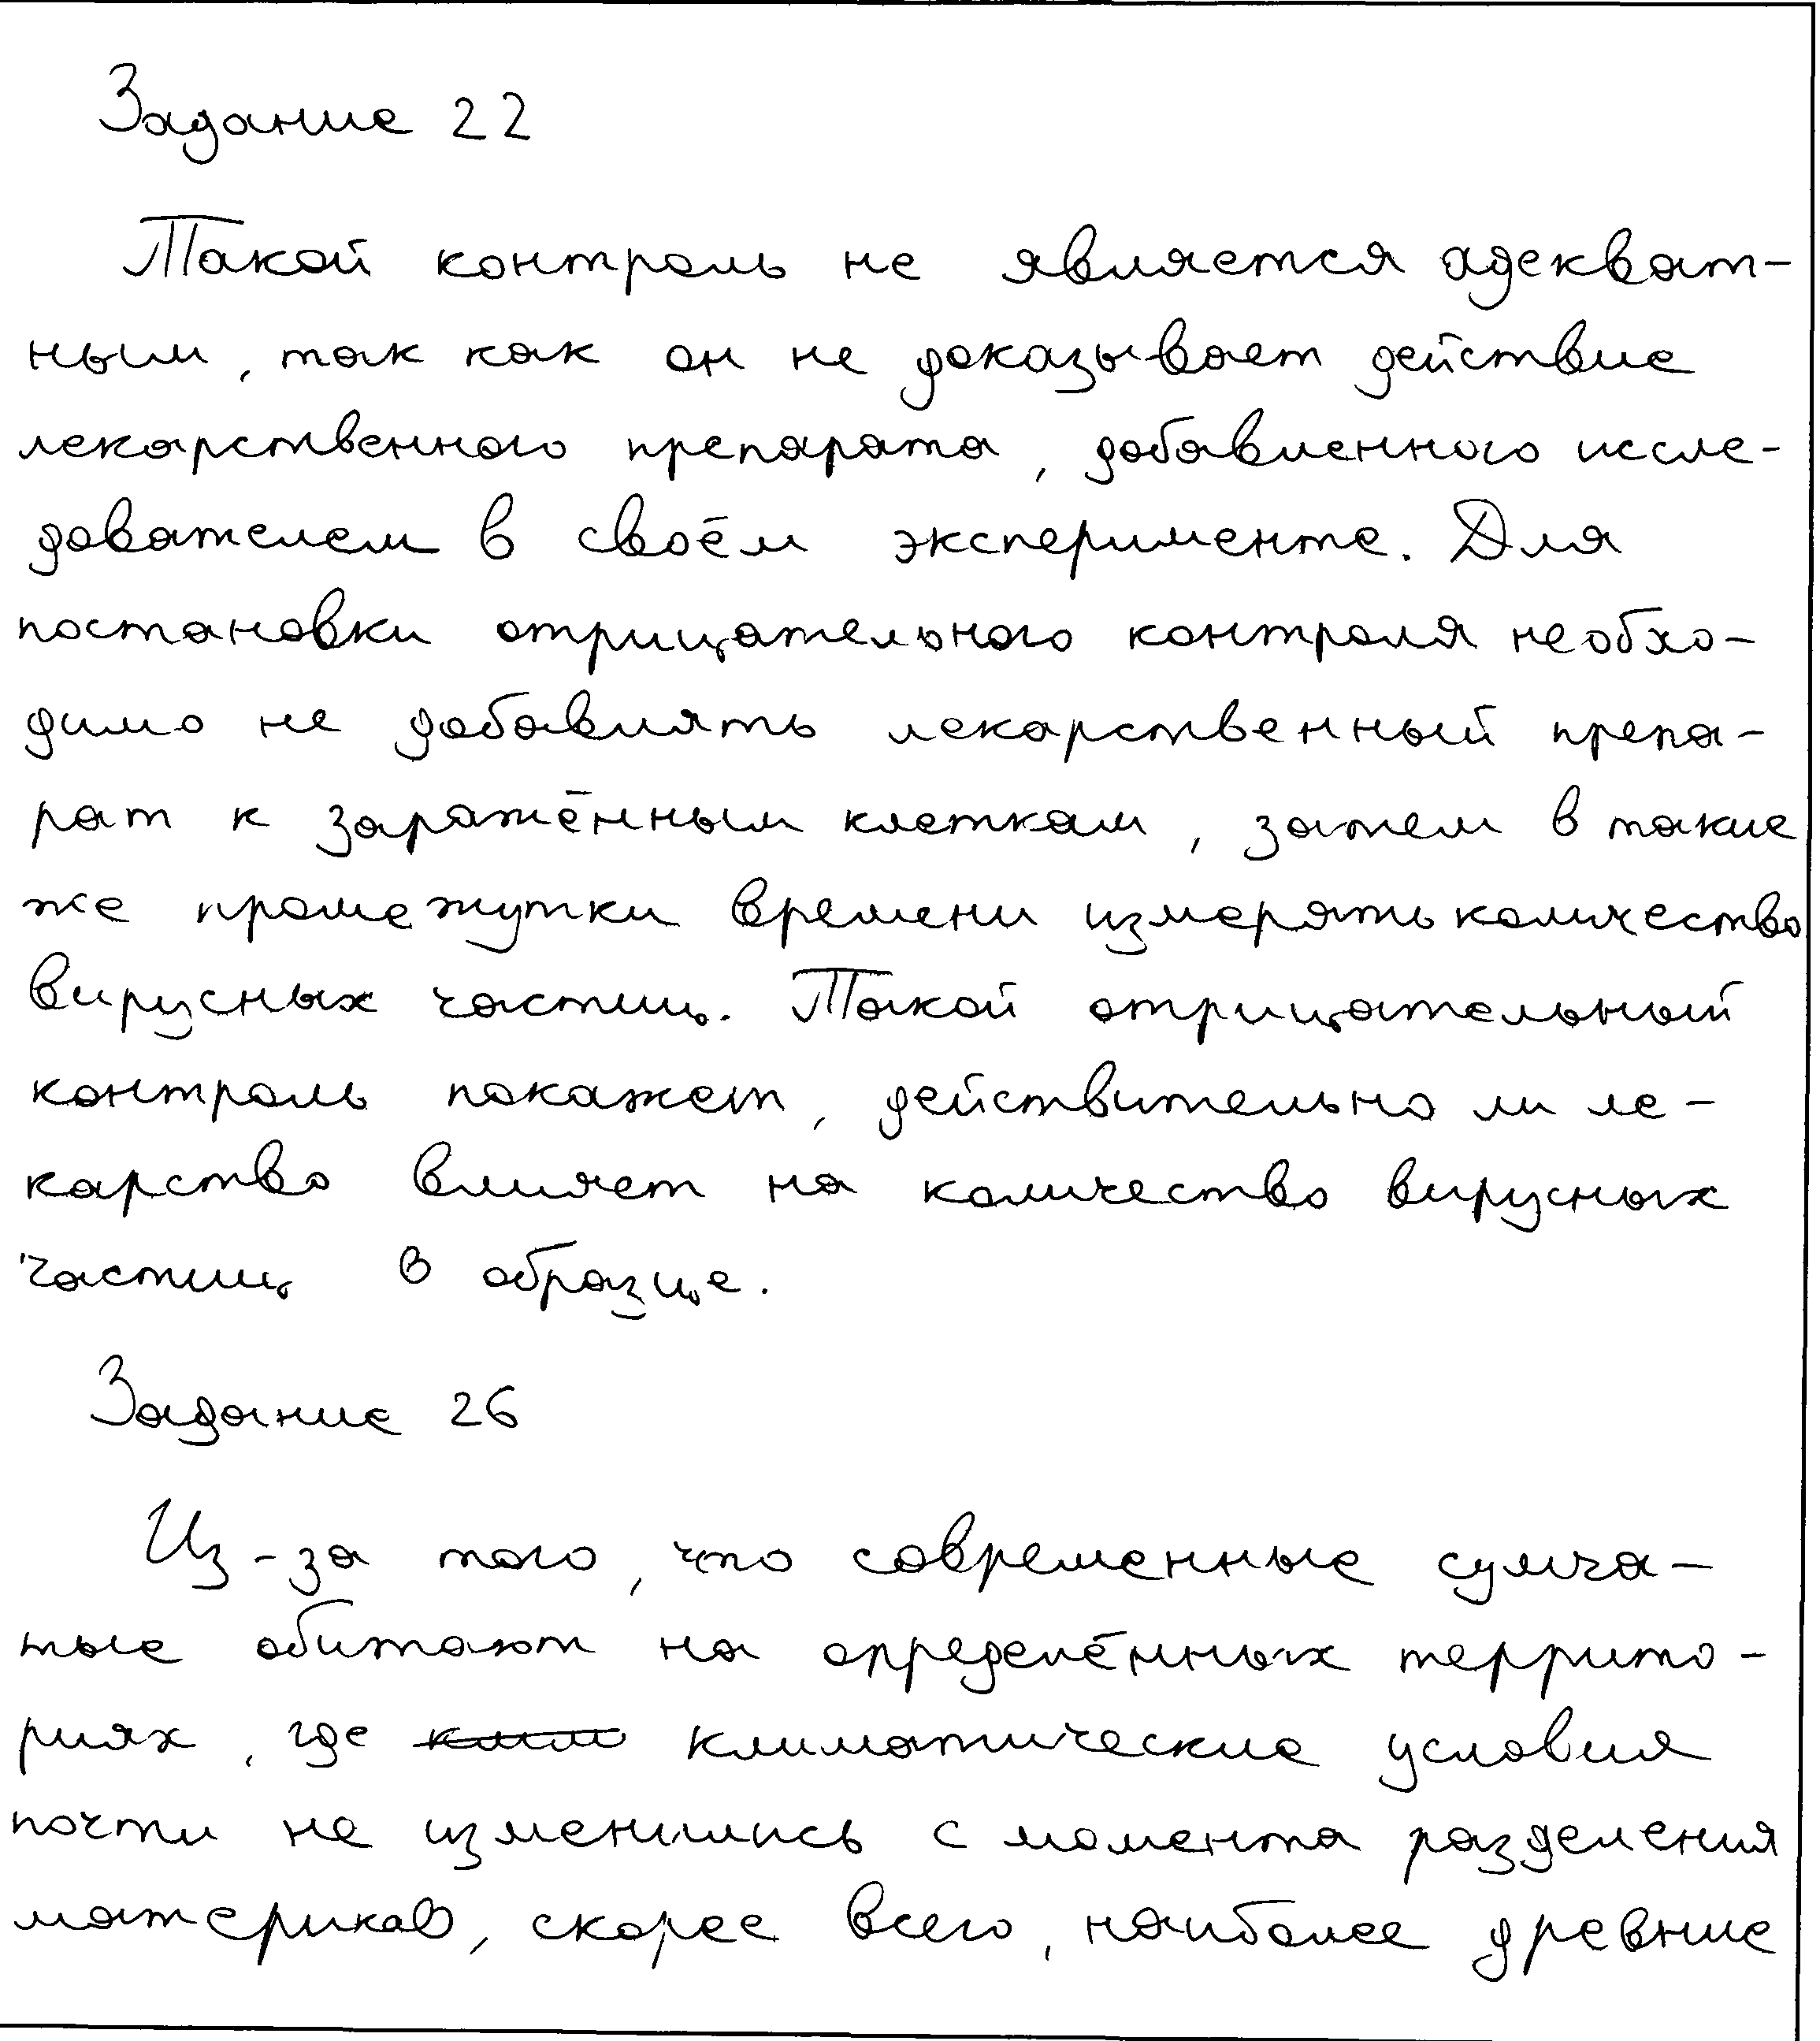 Задание 22
Такой контроль не является адекват-
ным, так как он не доказывает действие
лекарственного препарата, добавленного иссле-
дователем в своём эксперименте. Для
постановки отрицательного контроля необхо-
димо не добавлять лекарственный препа-
рат к заражённым клеткам, затем в такие
же промежутки времени измерять количество
вирусных частиц. Такой отрицательный
контроль покажет, действительно ли ле-
карство влияет на количество вирусных
частиц в образце.
Задание 26
Из-за того, что современные сумча-
тые обитают на определённых террито-
риях, где климатические условия
почти не изменились с момента разделения
материков, скорее всего, наиболее древние